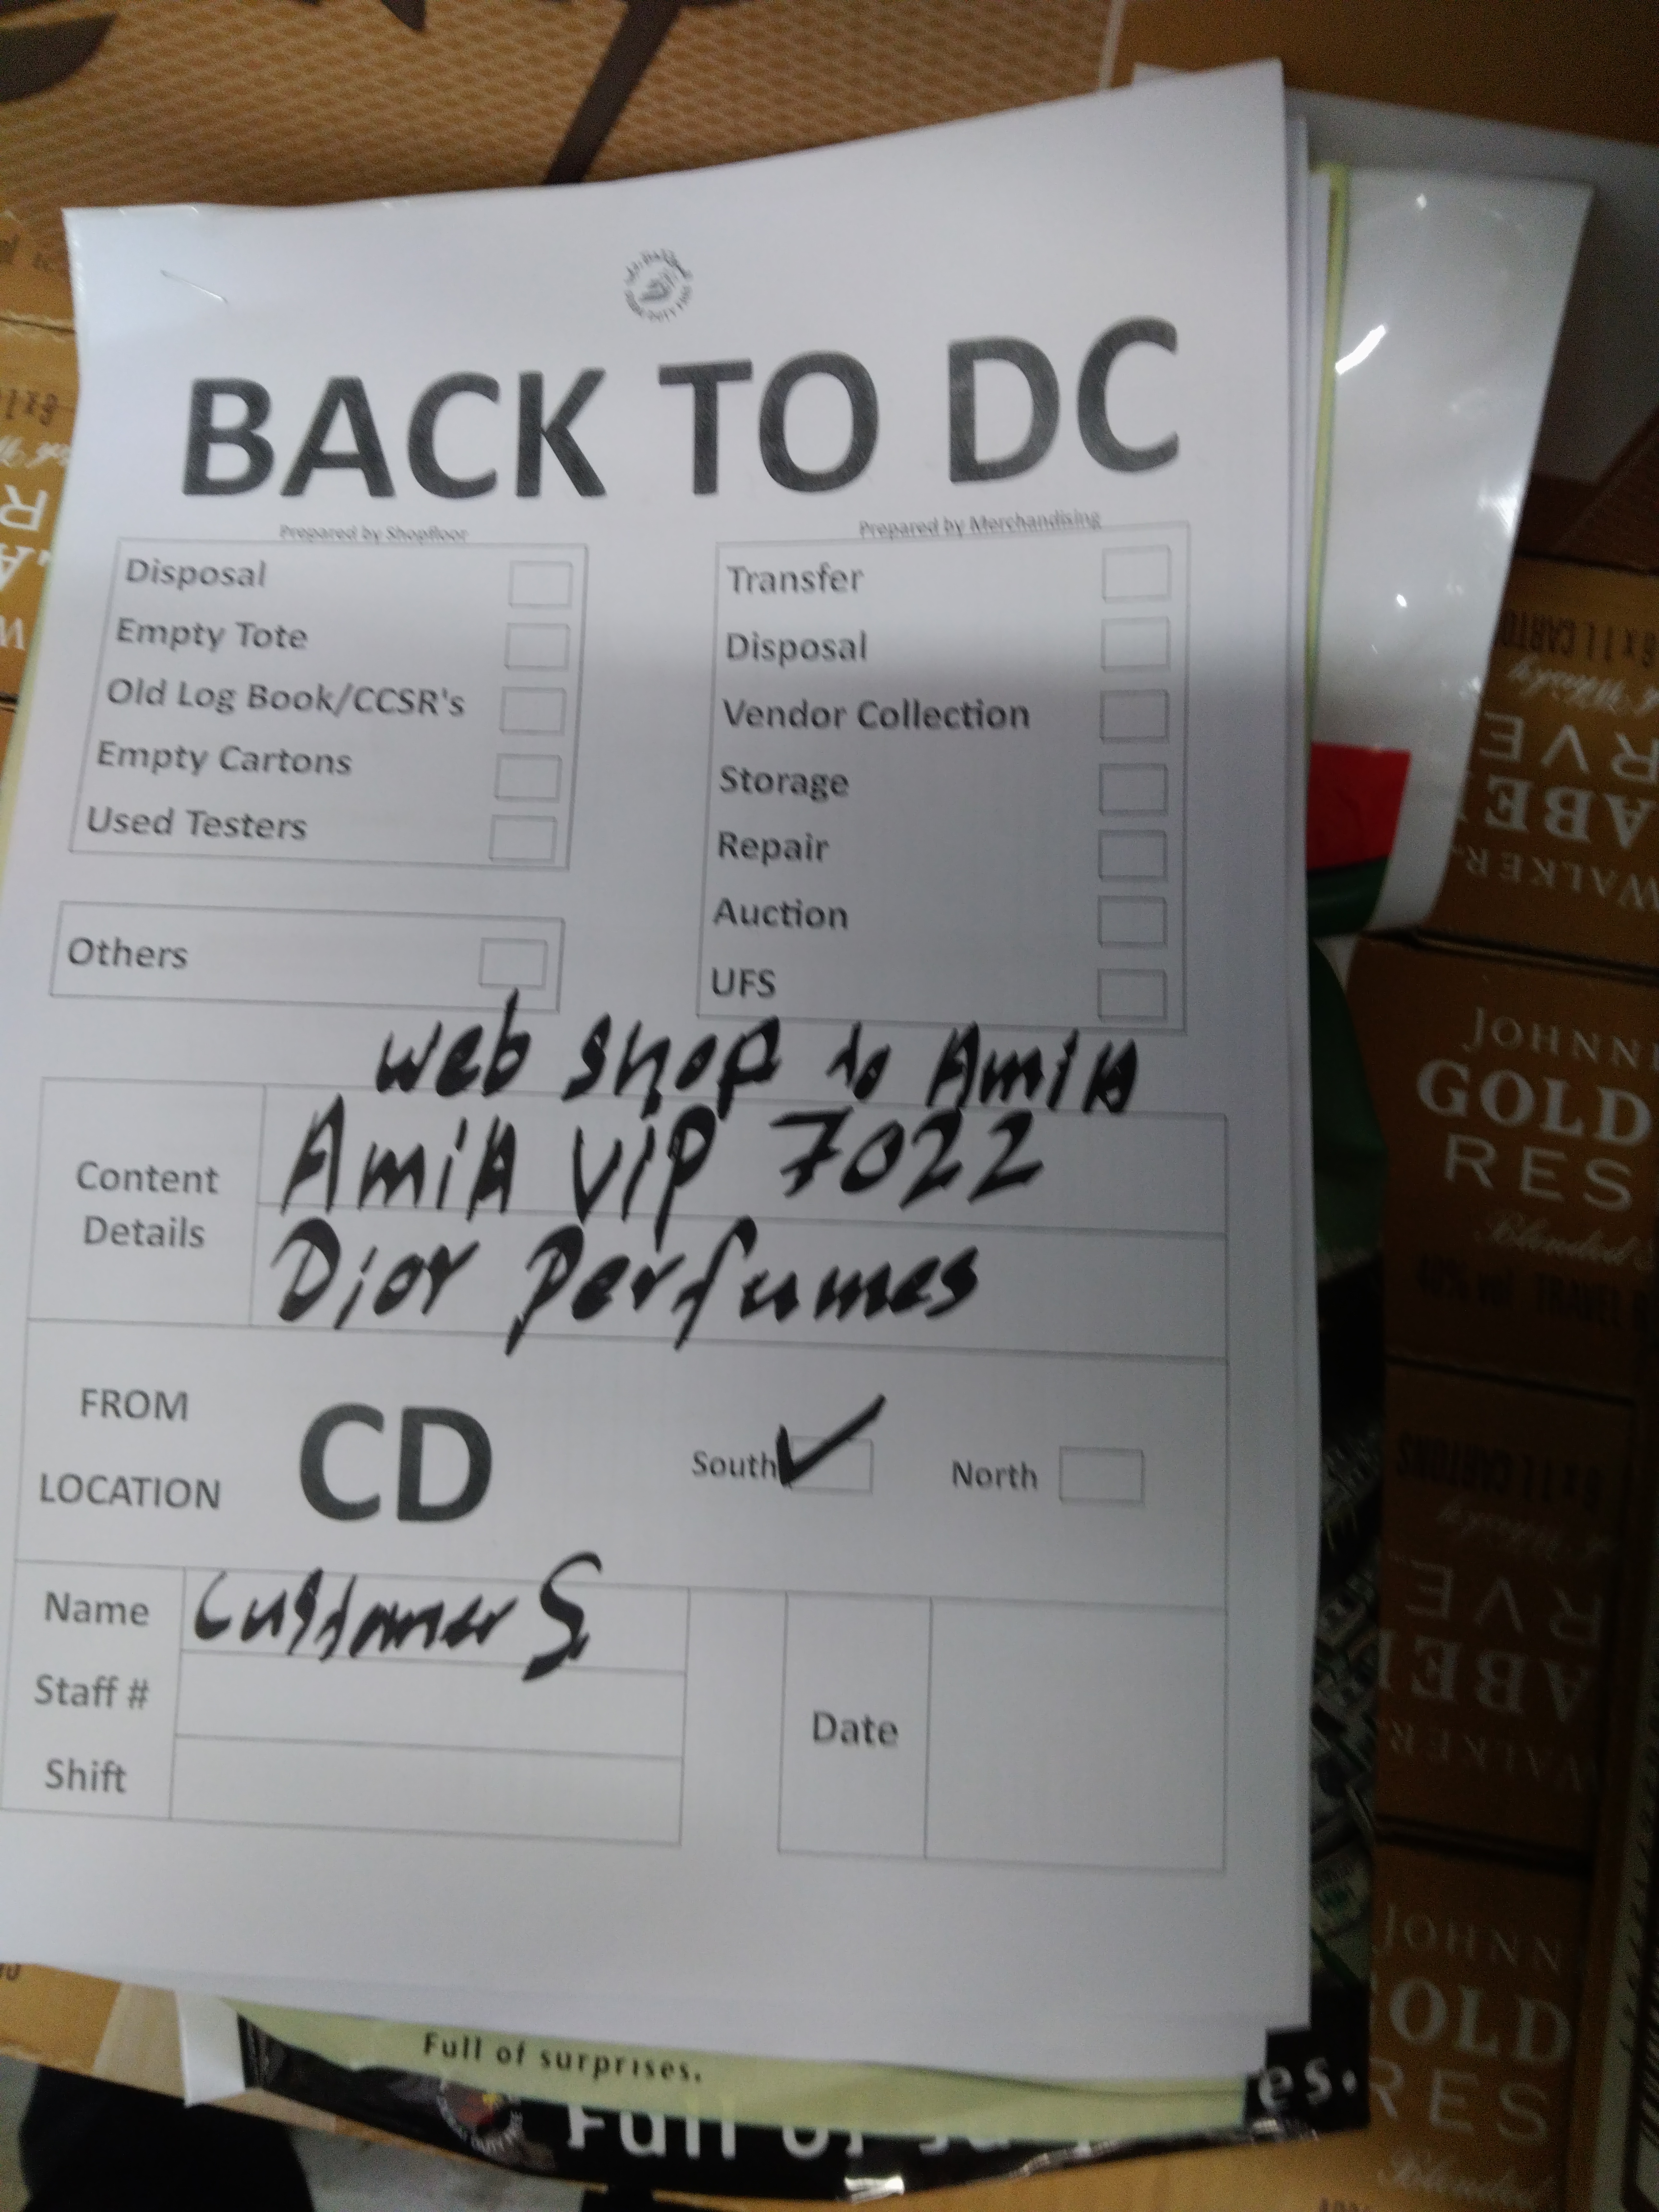 BACK TO DC
Prepared by Shopfloor
Disposal
Empty Tote
Old Log Book/CCSR's
Empty Cartons
Used Testers
Others
Prepared by Merchandising
Transfer
Disposal
Vendor Collection
Storage
Repair
Auction
UFS
web shop to AmiA
Content Details
AmiA VIP 7022
Dior Perfumes
FROM LOCATION
CD
South
North
Name
Customer S
Staff #
Shift
Date
Full of surprises.
JOHNN
GOLD
RES
Blended
6 x 1 L CARTO
RVE
ABE
WALKER
6 x 1 L CARTONS
RVE
ABE
WALKER
JOHNN
OLD
RES
Blended